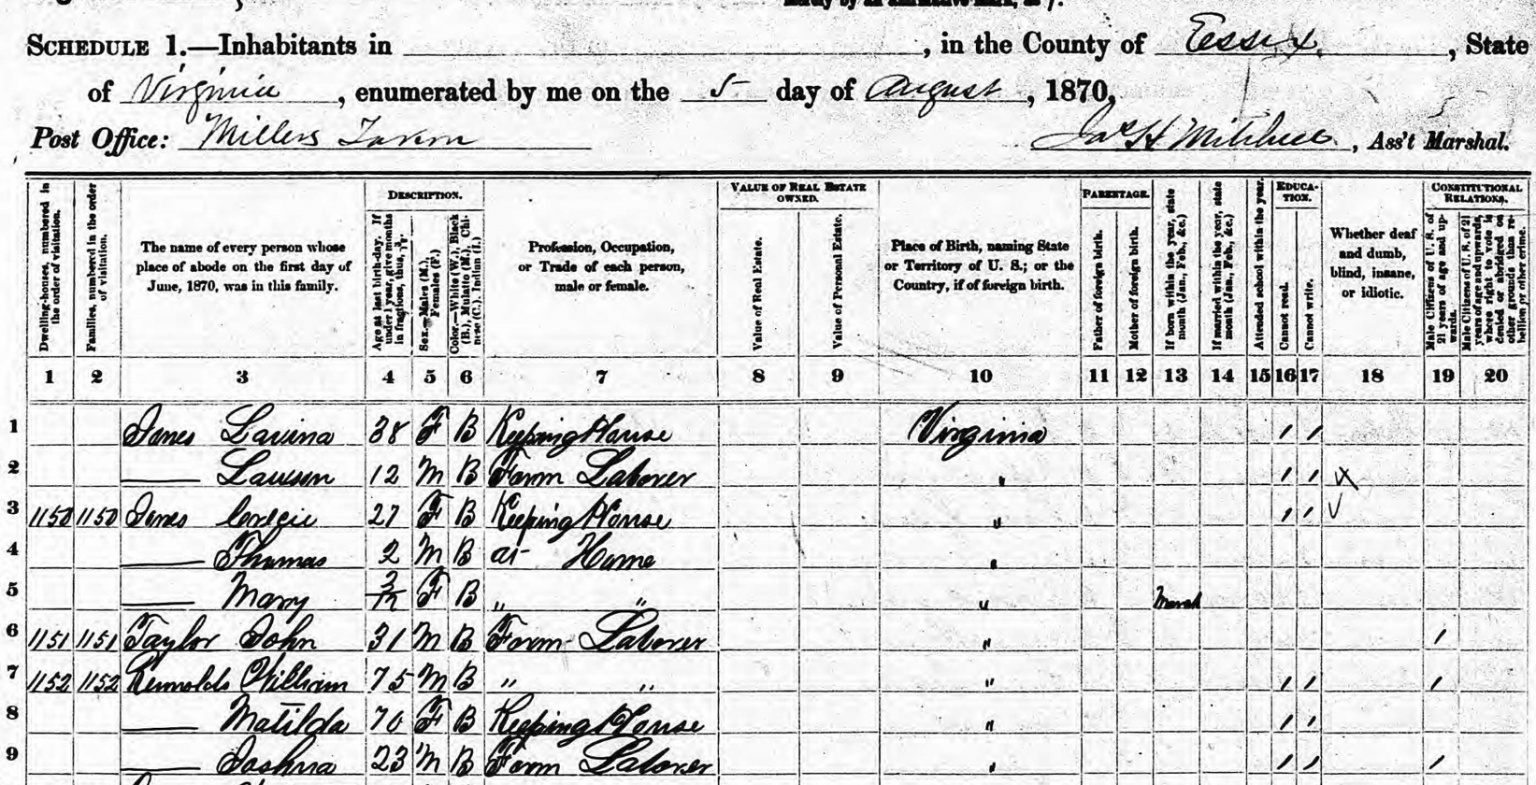 SCHEDULE 1.—Inhabitants in , in the County of Essex, State
of Virginia, enumerated by me on the 5 day of August, 1870,
Post Office: Millers Tavern Jas H Mitchell, Ass't Marshal.
Dwelling-houses, numbered in the order of visitation.
Families, numbered in the order of visitation.
The name of every person whose place of abode on the first day of June, 1870, was in this family.
DESCRIPTION.
Age at last birth-day. If under 1 year, give months in fractions, thus, 3/12.
Sex.—Males (M.), Females (F.)
Color.—White (W.), Black (B.), Mulatto (M.), Chinese (C.), Indian (I.)
Profession, Occupation, or Trade of each person, male or female.
VALUE OF REAL ESTATE OWNED.
Value of Real Estate.
Value of Personal Estate.
Place of Birth, naming State or Territory of U. S.; or the Country, if of foreign birth.
PARENTAGE.
Father of foreign birth.
Mother of foreign birth.
If born within the year, state month (Jan., Feb., &c.)
If married within the year, state month (Jan., Feb., &c.)
Attended school within the year.
EDUCATION.
Cannot read.
Cannot write.
Whether deaf and dumb, blind, insane, or idiotic.
CONSTITUTIONAL RELATIONS.
Male Citizens of U. S. of 21 years of age and upwards.
Male Citizens of U. S. of 21 years of age and upwards, where right to vote is denied or abridged on other grounds than rebellion or other crime.
1 2 3 4 5 6 7 8 9 10 11 12 13 14 15 16 17 18 19 20
1 Jones Lavina 38 F B Keeping House Virginia / /
2 —— Lawson 12 M B Farm Laborer " / /
3 1150 1150 Jones 27 F B Keeping House " / /
4 —— Thomas 2 M B at Home "
5 —— Mary 3/12 F B " " " March
6 1151 1151 Taylor John 31 M B Farm Laborer " /
7 1152 1152 Reinolds William 75 M B " " " / / /
8 —— Matilda 70 F B Keeping House " / /
9 —— Joshua 23 M B Farm Laborer " / / /